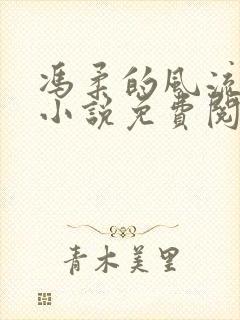 馮柔的風流
小說免費閱
青木美里